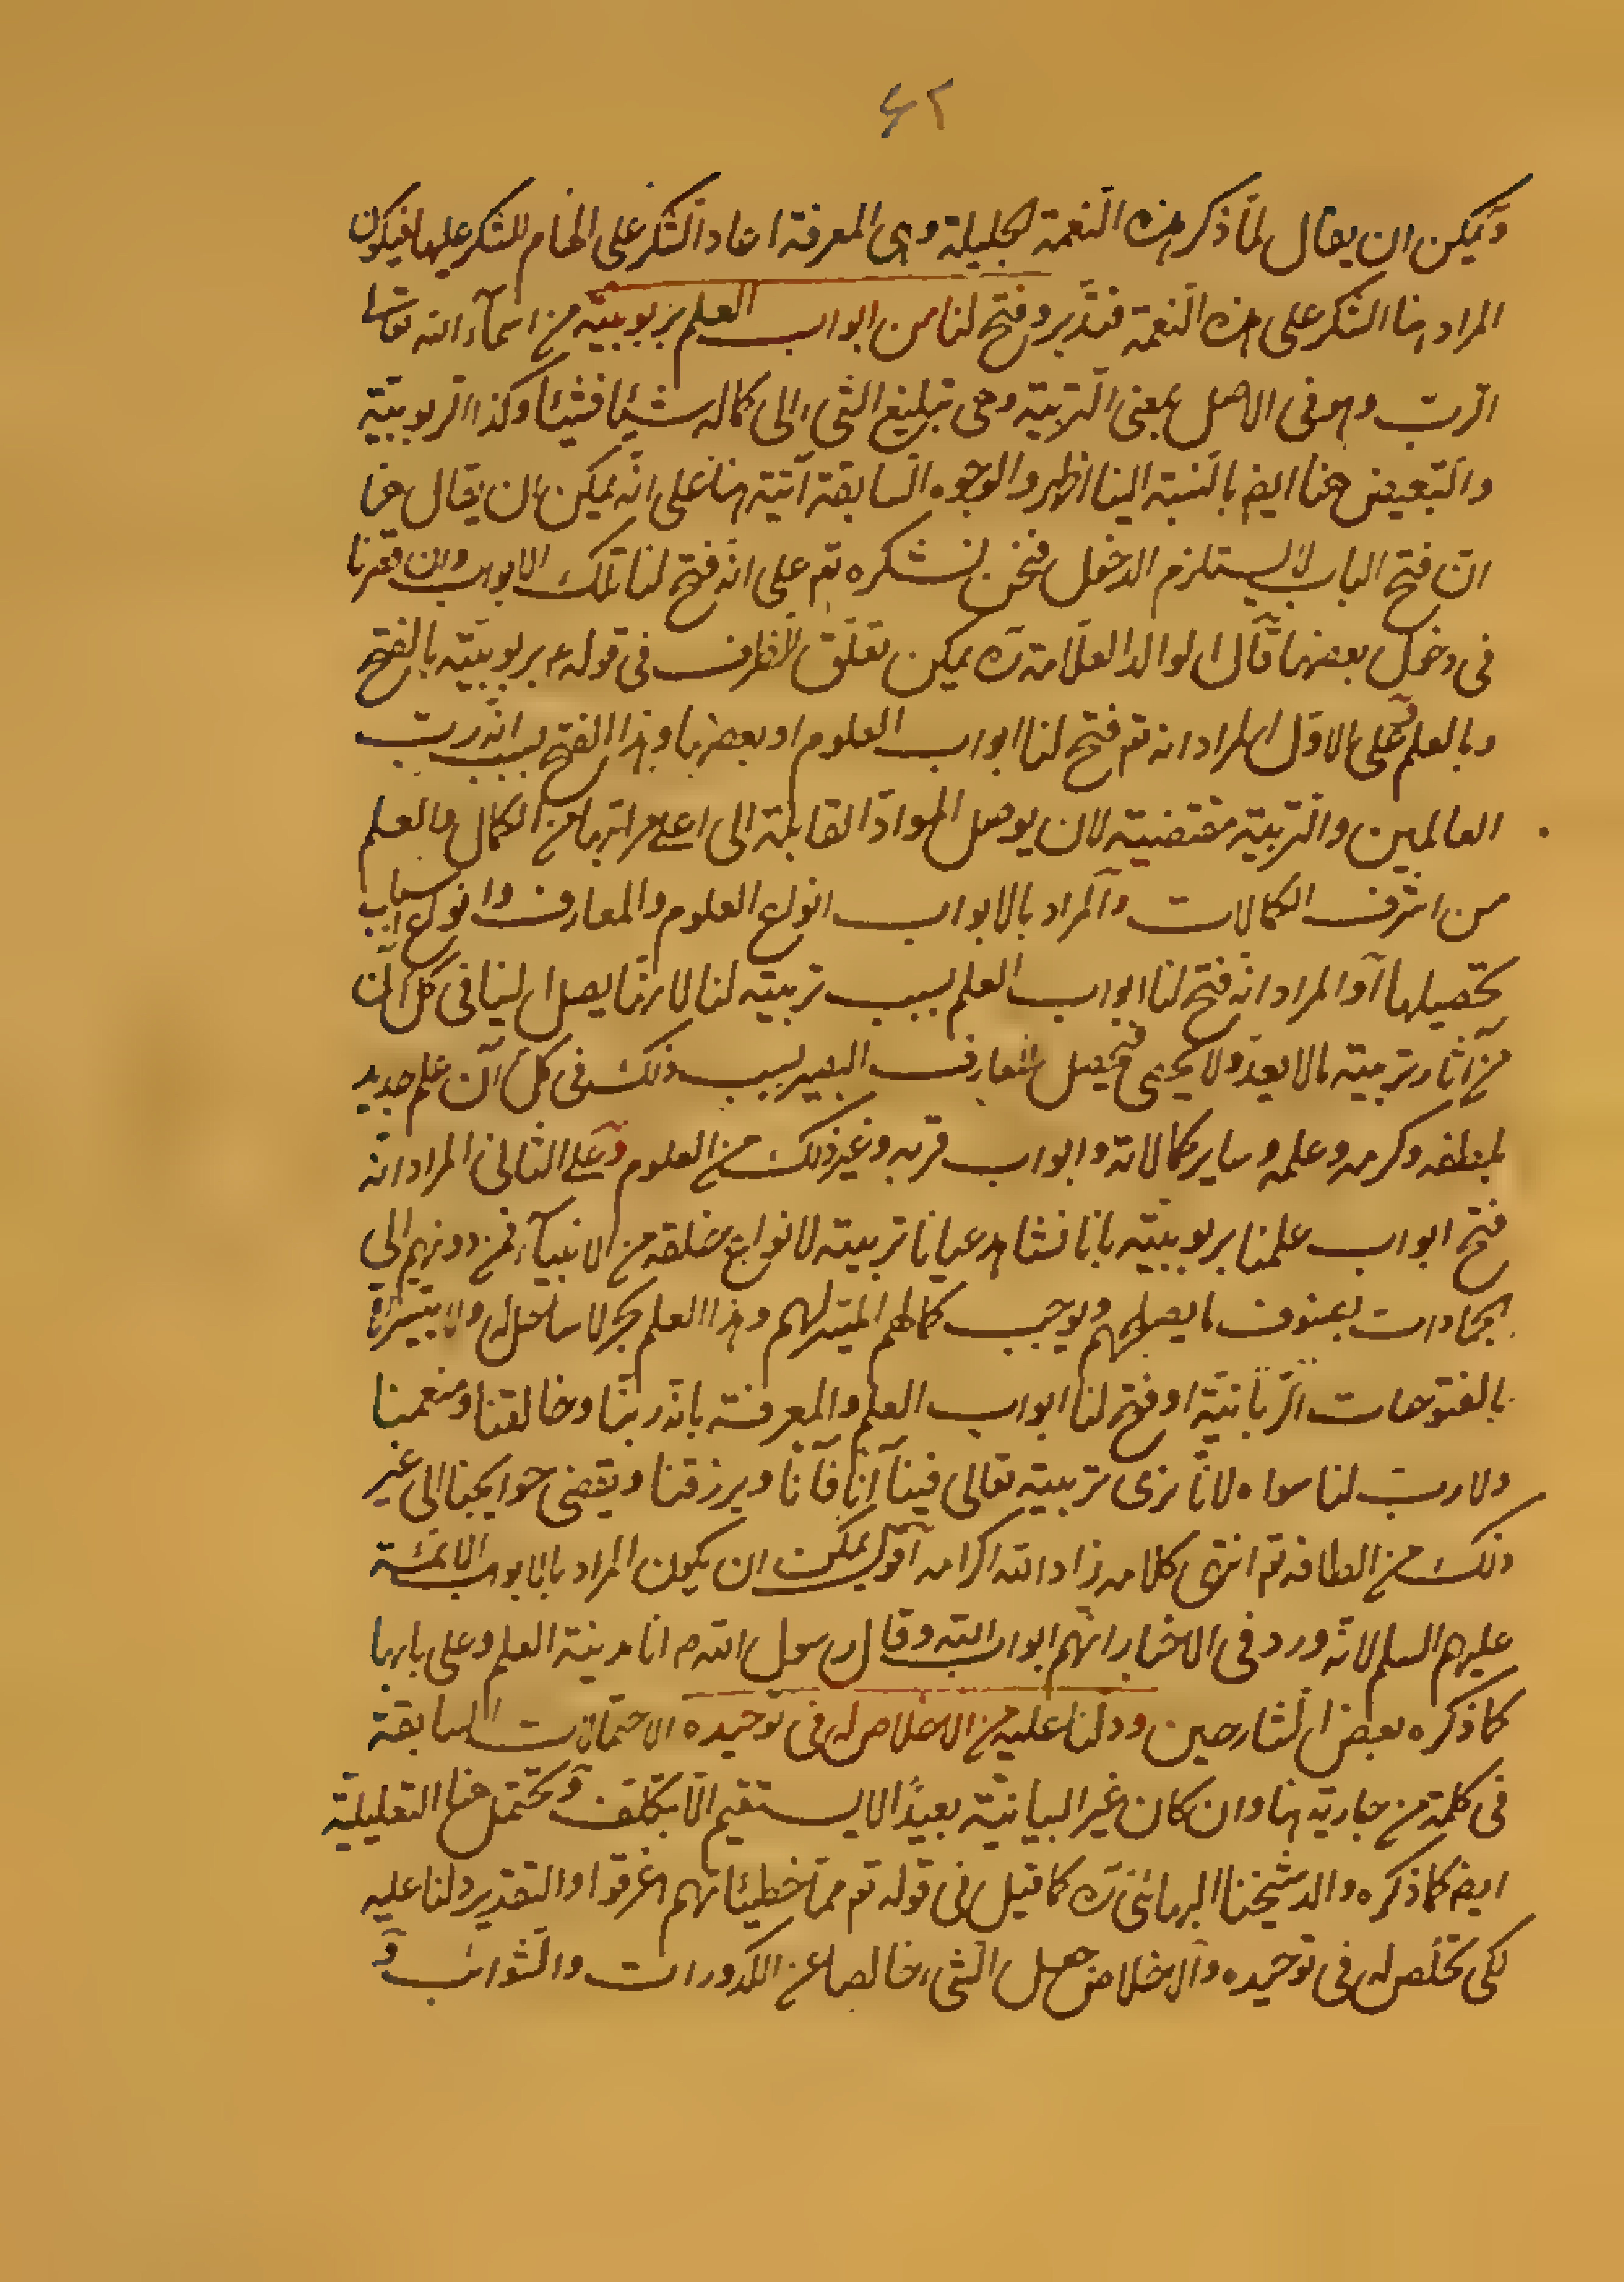 ۶۲
ويمكن ان يقال لمّا ذكر هذه النّعمة الجليلة وهى المعرفة اعاد الشّكر على الهام للشكر عليها فيكون
المراد هنا الشكر على هذه النّعمة فتدّبر وفتح لنا من ابواب العلم بربوبيّته من اسمآء الله تعالى
الرّب وهو فى الاصل بمعنى التّربية وهى تبليغ الشئ الى كماله شيئا فشيئا وكذا الرّبوبيّة
والتّبعيض هنا ايض بالنّسبة الينا اظهر والوجوه السّابقة آتية هنا على انّه يمكن ان يقال هنا
انّ فتح الباب لا يستلزم الدخول فنحن نشكره تع على انّه فتح لنا تلك الابواب وان قصّرنا
فى دخول بعضها قال الوالد العلّامة ره يمكن تعلّق الظرف فى قوله ع بربوبيّته بالفتح
وبالعلم فعلى الاوّل المراد انه تع فتح لنا ابواب العلوم او بعضها وهذا الفتح بسبب انّه ربّ
العالمين والتّربية مقتضية لان يوصل الموادّ القابلة الى اعلى مراتبها من الكمال والعلم
من اشرف الكمالات والمراد بالابواب انواع العلوم والمعارف وانواع اسباب
تحصيلها او المراد انّه فتح لنا ابواب العلم بسبب تربيته لنا لانّا يصل الينا فى كلّ آن
من آثار تربيته ما لا يعدّ ولا يحصى فيحصل للعارف البصير بسبب ذلك فى كلّ آن علم جديد
بلطفه وكرمه وعلمه وساير كمالاته وابواب قربه وغير ذلك من العلوم وعلى الثانى المراد انه
فتح ابواب علمنا بربوبيّته بانا نشاهد عيانا تربيته لانواع خلقه من الانبيآء فمن دونهم الى
الجمادات بصنوف ما يصلحهم ويوجب كمالهم الميسّر لهم وهذا العلم بحر لا ساحل له ولا يتيسّر الّا
بالفتوحات الرّبّانيّة او فتح لنا ابواب العلم والمعرفة بانّه ربّنا وخالقنا ومنعمنا
ولا ربّ لنا سواه لانّا نرى تربيته تعالى فينا آناً فآناً ويرزقنا ويقضى حوايجنا الى غير
ذلك من الطافه تع انتهى كلامه زاد الله اكرامه اقول يمكن ان يكون المراد بالابواب الائمّة
عليهم السلم لانّه ورد فى الاخبار انّهم ابواب الله وقال رسول الله ص انا مدينة العلم وعلى بابها
كما ذكره بعض الشّارحين ودلنا عليه من الاخلاص له فى توحيده الاحتمالات السابقة
فى كلمة من جارية هنا وان كان غير البيانيّة بعيدًا لا يستقيم الّا بتكلّف ويحتمل هنا التعليليّة
ايض كما ذكره والد شيخنا البهائى ره كما قيل فى قوله تع ممّا خطيئاتهم اغرقوا والتقدير دلنا عليه
لكى نخلّص له فى توحيده والاخلاص جعل الشّئ خالصا عن الكدورات والشّوائب و